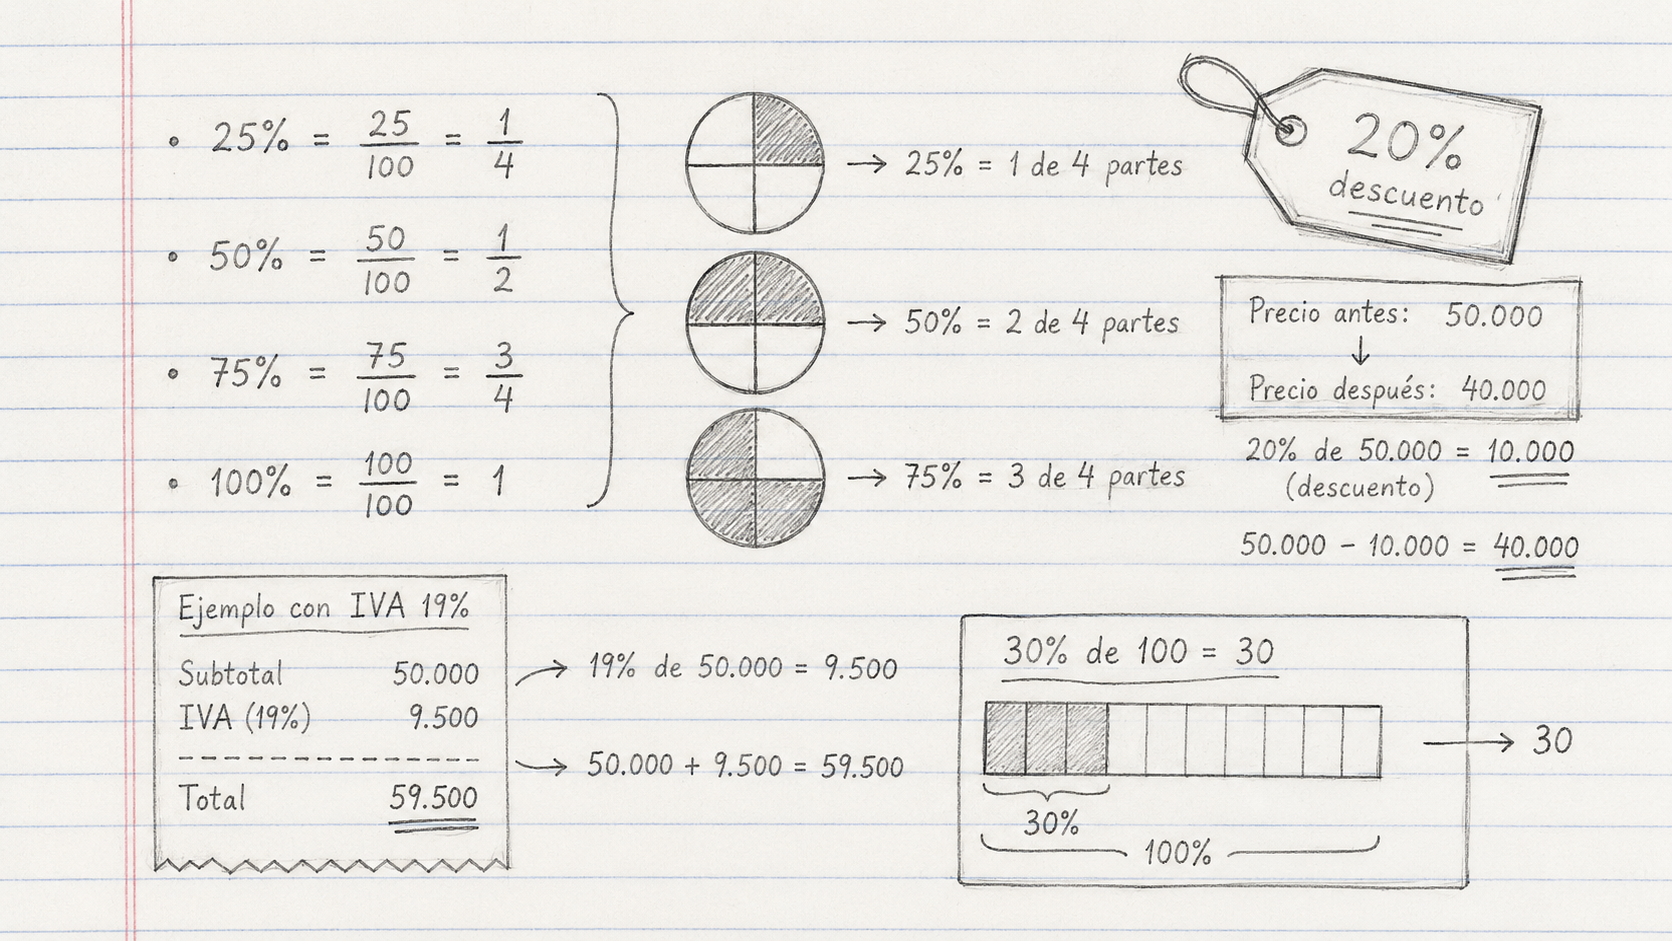 • 25% = 25/100 = 1/4
• 50% = 50/100 = 1/2
• 75% = 75/100 = 3/4
• 100% = 100/100 = 1
→ 25% = 1 de 4 partes
→ 50% = 2 de 4 partes
→ 75% = 3 de 4 partes
20%
descuento
Precio antes: 50.000
↓
Precio después: 40.000
20% de 50.000 = 10.000
(descuento)
50.000 - 10.000 = 40.000
Ejemplo con IVA 19%
Subtotal 50.000
IVA (19%) 9.500
Total 59.500
→ 19% de 50.000 = 9.500
→ 50.000 + 9.500 = 59.500
30% de 100 = 30
→ 30
30%
100%